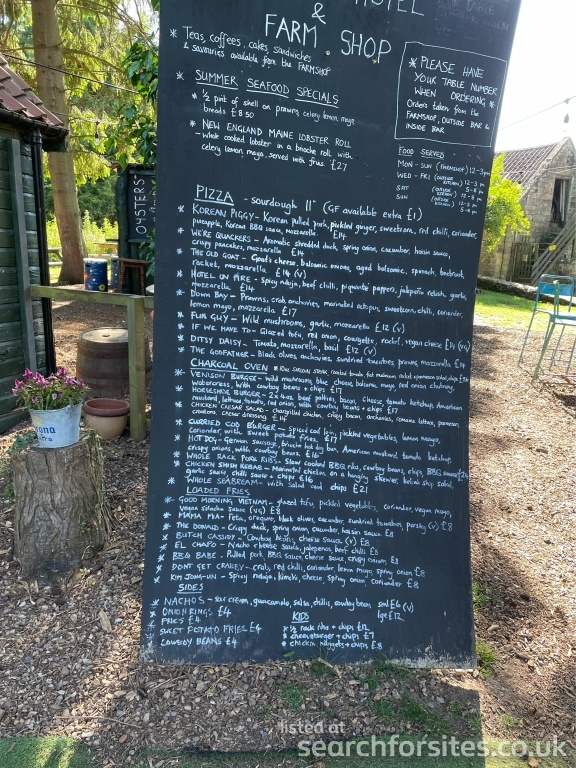 HOTEL
&
FARM SHOP
* Teas, coffees, cakes, sandwiches
& savouries available from the FARMSHOP
* PLEASE HAVE
YOUR TABLE NUMBER
WHEN ORDERING *
Orders taken from the
FARMSHOP, OUTSIDE BAR &
INSIDE BAR
SUMMER SEAFOOD SPECIALS
* 1/2 pint of shell on prawns, celery lemon mayo
breads £8.50
* NEW ENGLAND MAINE LOBSTER ROLL
- whole cooked lobster in a brioche roll with
celery lemon mayo, served with fries £27
FOOD SERVED
MON - SUN (FARMSHOP) 12-3pm
WED - FRI (OUTSIDE KITCHEN) 12-3pm
5-8pm
SAT (OUTSIDE KITCHEN) 12-8pm
SUN (OUTSIDE KITCHEN) 12-3pm
5-8pm
OYSTERS
PIZZA - sourdough 11" (GF available extra £1)
* KOREAN PIGGY - Korean Pulled pork, pickled ginger, sweetcorn, red chilli, coriander,
pineapple, Korean BBQ sauce, mozzarella £14
* WE'RE QUACKERS - Aromatic shredded duck, spring onion, cucumber, hoisin sauce,
crispy pancakes, mozzarella £14
* THE OLD GOAT - Goats cheese, balsamic onions, aged balsamic, spinach, beetroot,
rocket, mozzarella £14 (V)
* HOTEL ON FIRE - Spicy nduja, beef chilli, piquante peppers, jalapeño relish, garlic,
mozzarella £14
* DOWN BAY - Prawns, crab, anchovies, marinated octopus, sweetcorn, chilli, coriander
lemon mayo, mozzarella £17
* FUN GUY - Wild mushrooms, garlic, mozzarella £12 (V)
* IF WE HAVE TO - Glazed tofu, red onion, courgette, rocket, vegan cheese £14 (VG)
* DITSY DAISY - Tomato, mozzarella, basil £12 (V)
* THE GODFATHER - Black olives, anchovies, sundried tomatoes, prawns, mozzarella £14
CHARCOAL OVEN
* VENISON BURGER - wild mushroom, blue cheese, balsamic mayo, red onion chutney,
watercress, with cowboy beans + chips £17
* HORSESHOE BURGER - 2x4oz beef patties, bacon, cheese, tomato ketchup, American
mustard, lettuce, tomato, red onion, with cowboy beans + chips £17
* CHICKEN CAESAR SALAD - chargrilled chicken, crispy bacon, anchovies, romaine lettuce, parmesan,
croutons, Caesar dressing £16
* CURRIED COD BURGER - Spiced cod loin, pickled vegetables, lemon mayo,
coriander, with sweet potato fries £17
* HOT DOG - German sausage, brioche hot dog bun, American mustard, tomato ketchup,
crispy onions, with cowboy beans £16
* WHOLE RACK PORK RIBS - Slow cooked BBQ ribs, cowboy beans, chips, BBQ sauce £24
* CHICKEN SHISH KEBAB - Marinated chicken on a hanging skewer, kebab shop salad,
garlic sauce, chilli sauce + chips £16
* WHOLE SEABREAM - with salad and chips £21
LOADED FRIES
* GOOD MORNING VIETNAM - glazed tofu, pickled vegetables, coriander, vegan mayo,
vegan siracha sauce (VG) £8
* MAMA MIA - Feta, oregano, black olives, cucumber, sundried tomatoes, parsley (V) £8
* THE DONALD - Crispy duck, spring onion, cucumber, hoisin sauce £8
* BUTCH CASSIDY - Cowboy beans, cheese sauce (V) £8
* EL CHAPO - Nacho cheese sauce, jalapenos, beef chilli £8
* BBQ BABE - Pulled pork, BBQ sauce, cheese sauce, crispy onion, £8
* DON'T GET CRABBY - crab, red chilli, coriander, lemon mayo, spring onion £8
* KIM JONG-UN - Spicy nduja, kimchi, cheese, Spring onion, coriander £8
SIDES
* NACHOS - sour cream, guacamole, salsa, chillis, cowboy beans sml £6 (V)
lge £12
* ONION RINGS £4
* FRIES £4
* SWEET POTATO FRIES £4
* COWBOY BEANS £4
KIDS
* 1/2 rack ribs + chips £12
* cheeseburger + chips £7
* chicken nuggets + chips £8
listed at
searchforsites.co.uk